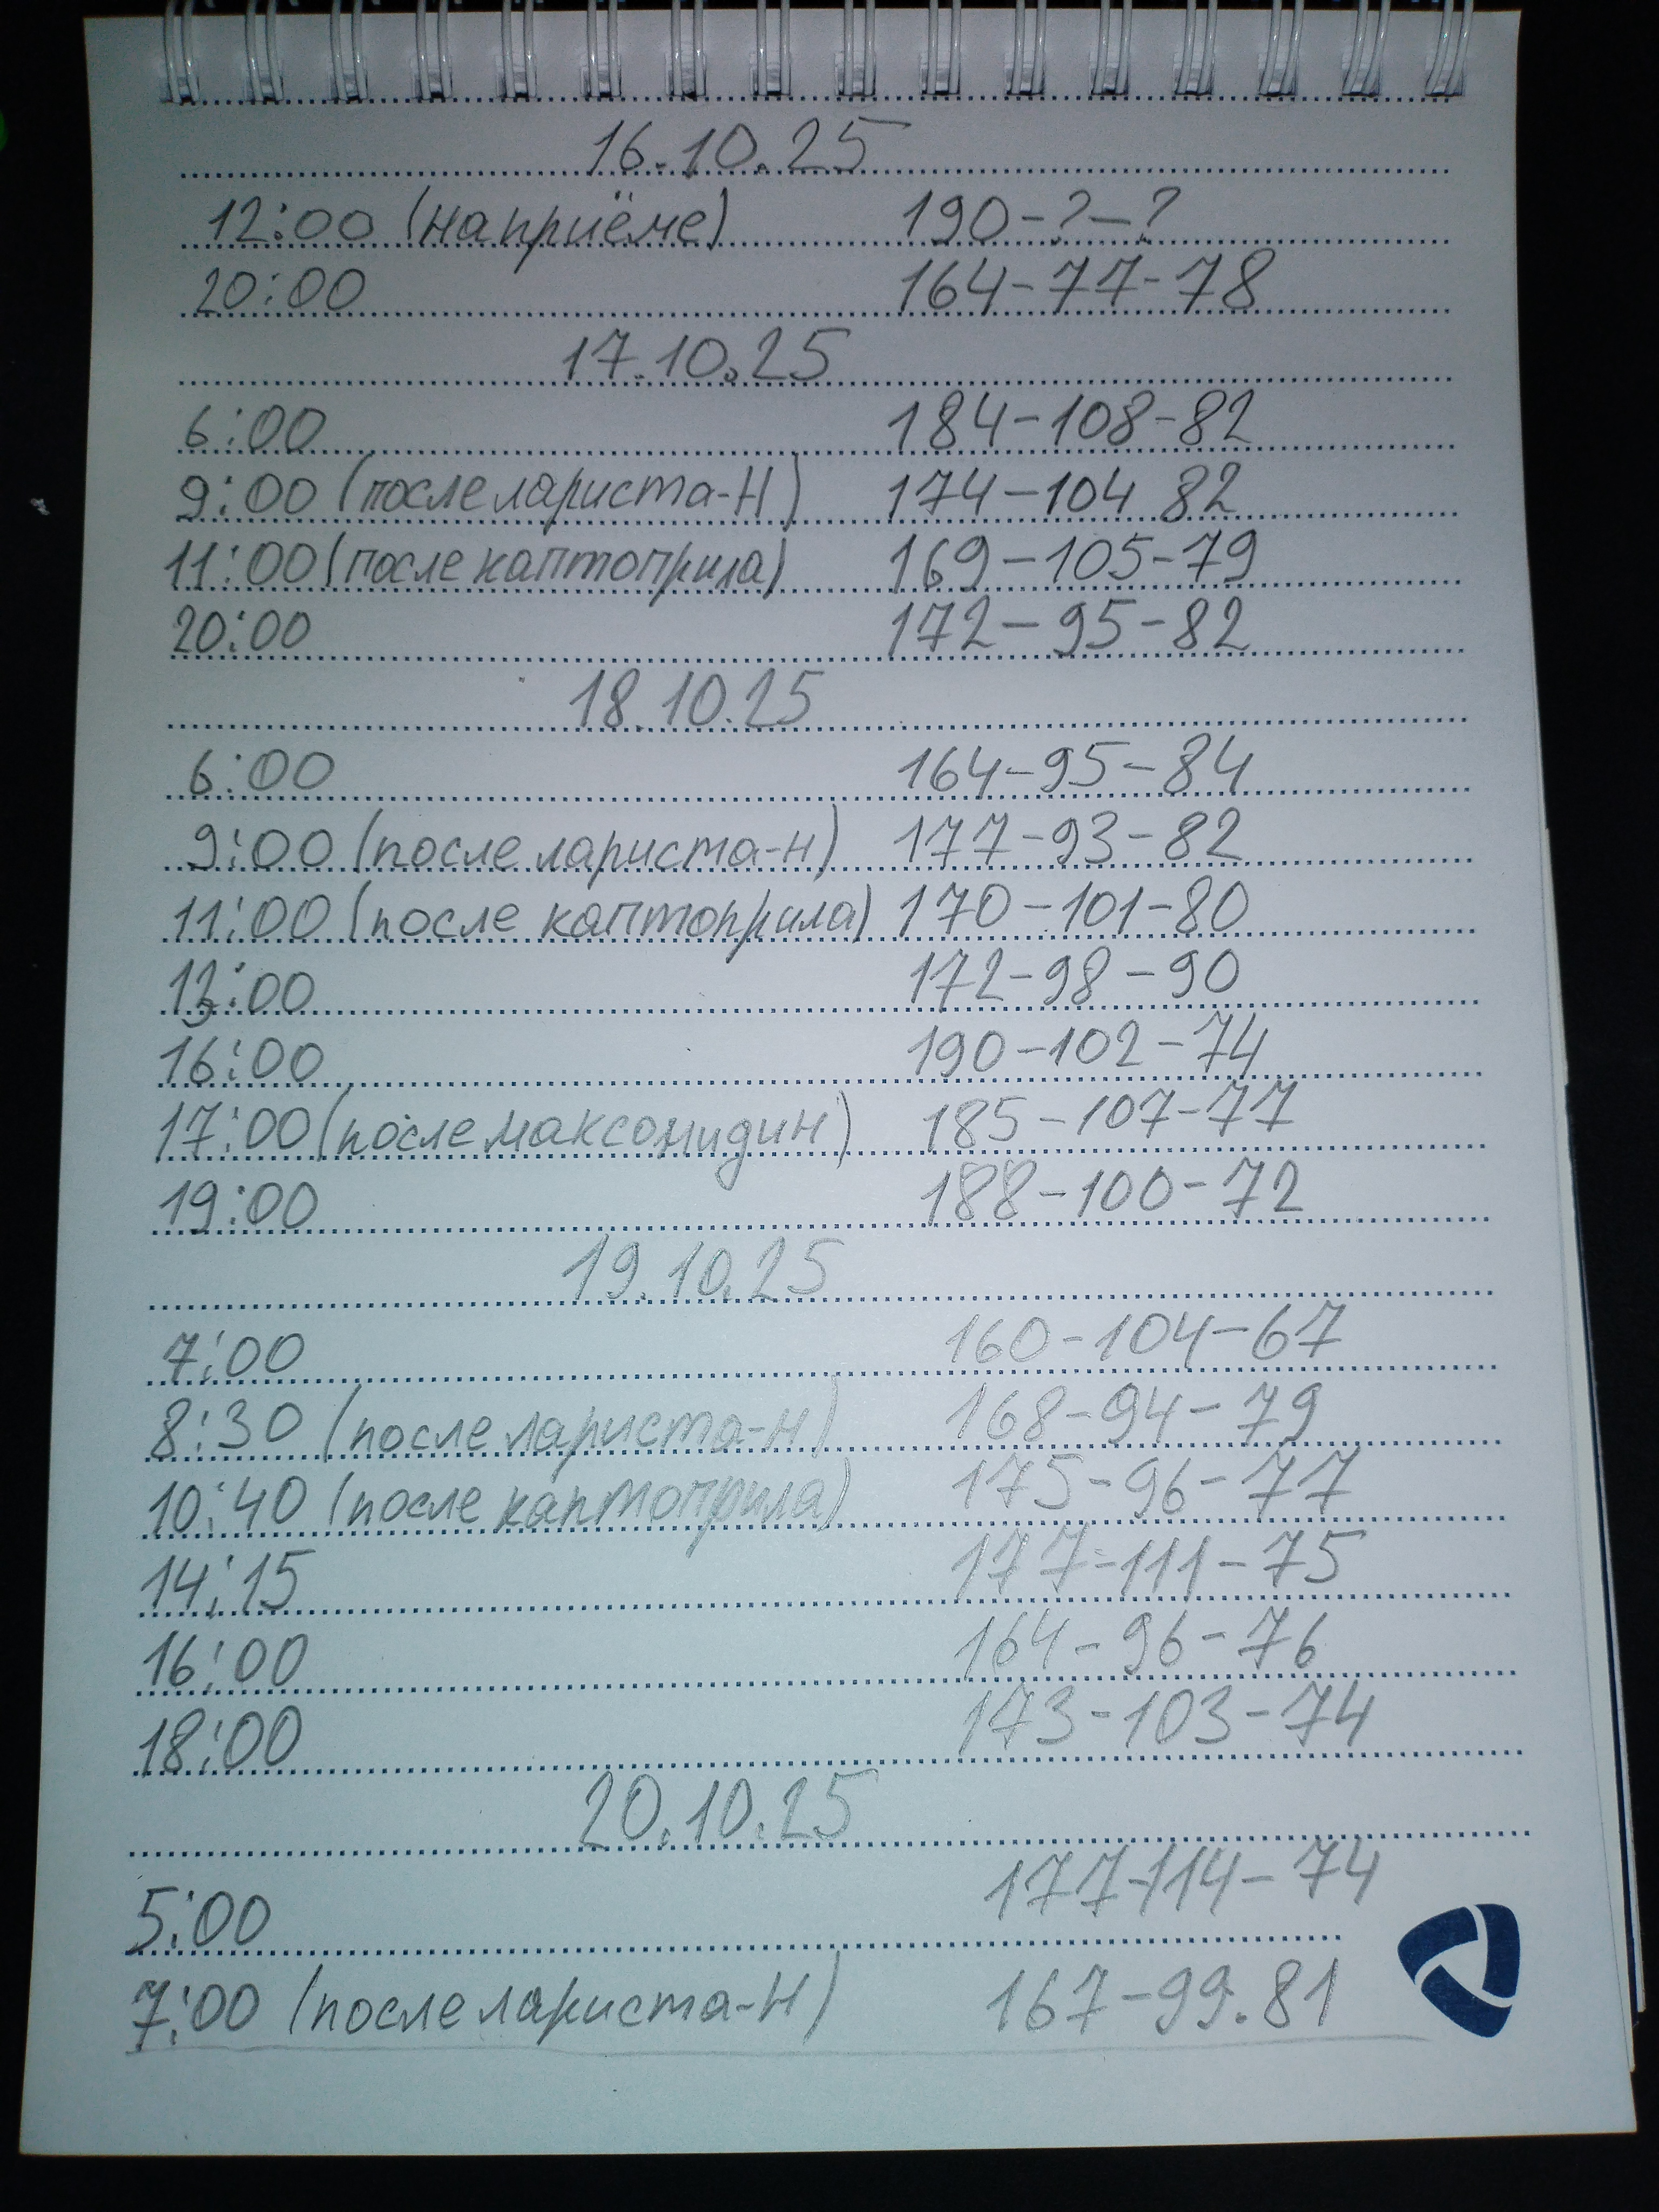 16.10.25
12:00 (на приёме) 190-?-?
20:00 164-77-78
17.10.25
6:00 184-108-82
9:00 (после лариста-Н) 174-104 82
11:00 (после каптоприла) 169-105-79
20:00 172-95-82
18.10.25
6:00 164-95-84
9:00 (после лариста-н) 177-93-82
11:00 (после каптоприла) 170-101-80
13:00 172-98-90
16:00 190-102-74
17:00 (после максонидин) 185-107-77
19:00 188-100-72
19.10.25
7:00 160-104-67
8:30 (после лариста-н) 168-94-79
10:40 (после каптоприла) 175-96-77
14:15 177-111-75
16:00 164-96-76
18:00 173-103-74
20.10.25
5:00 177-114-74
7:00 (после лариста-Н) 167-99.81